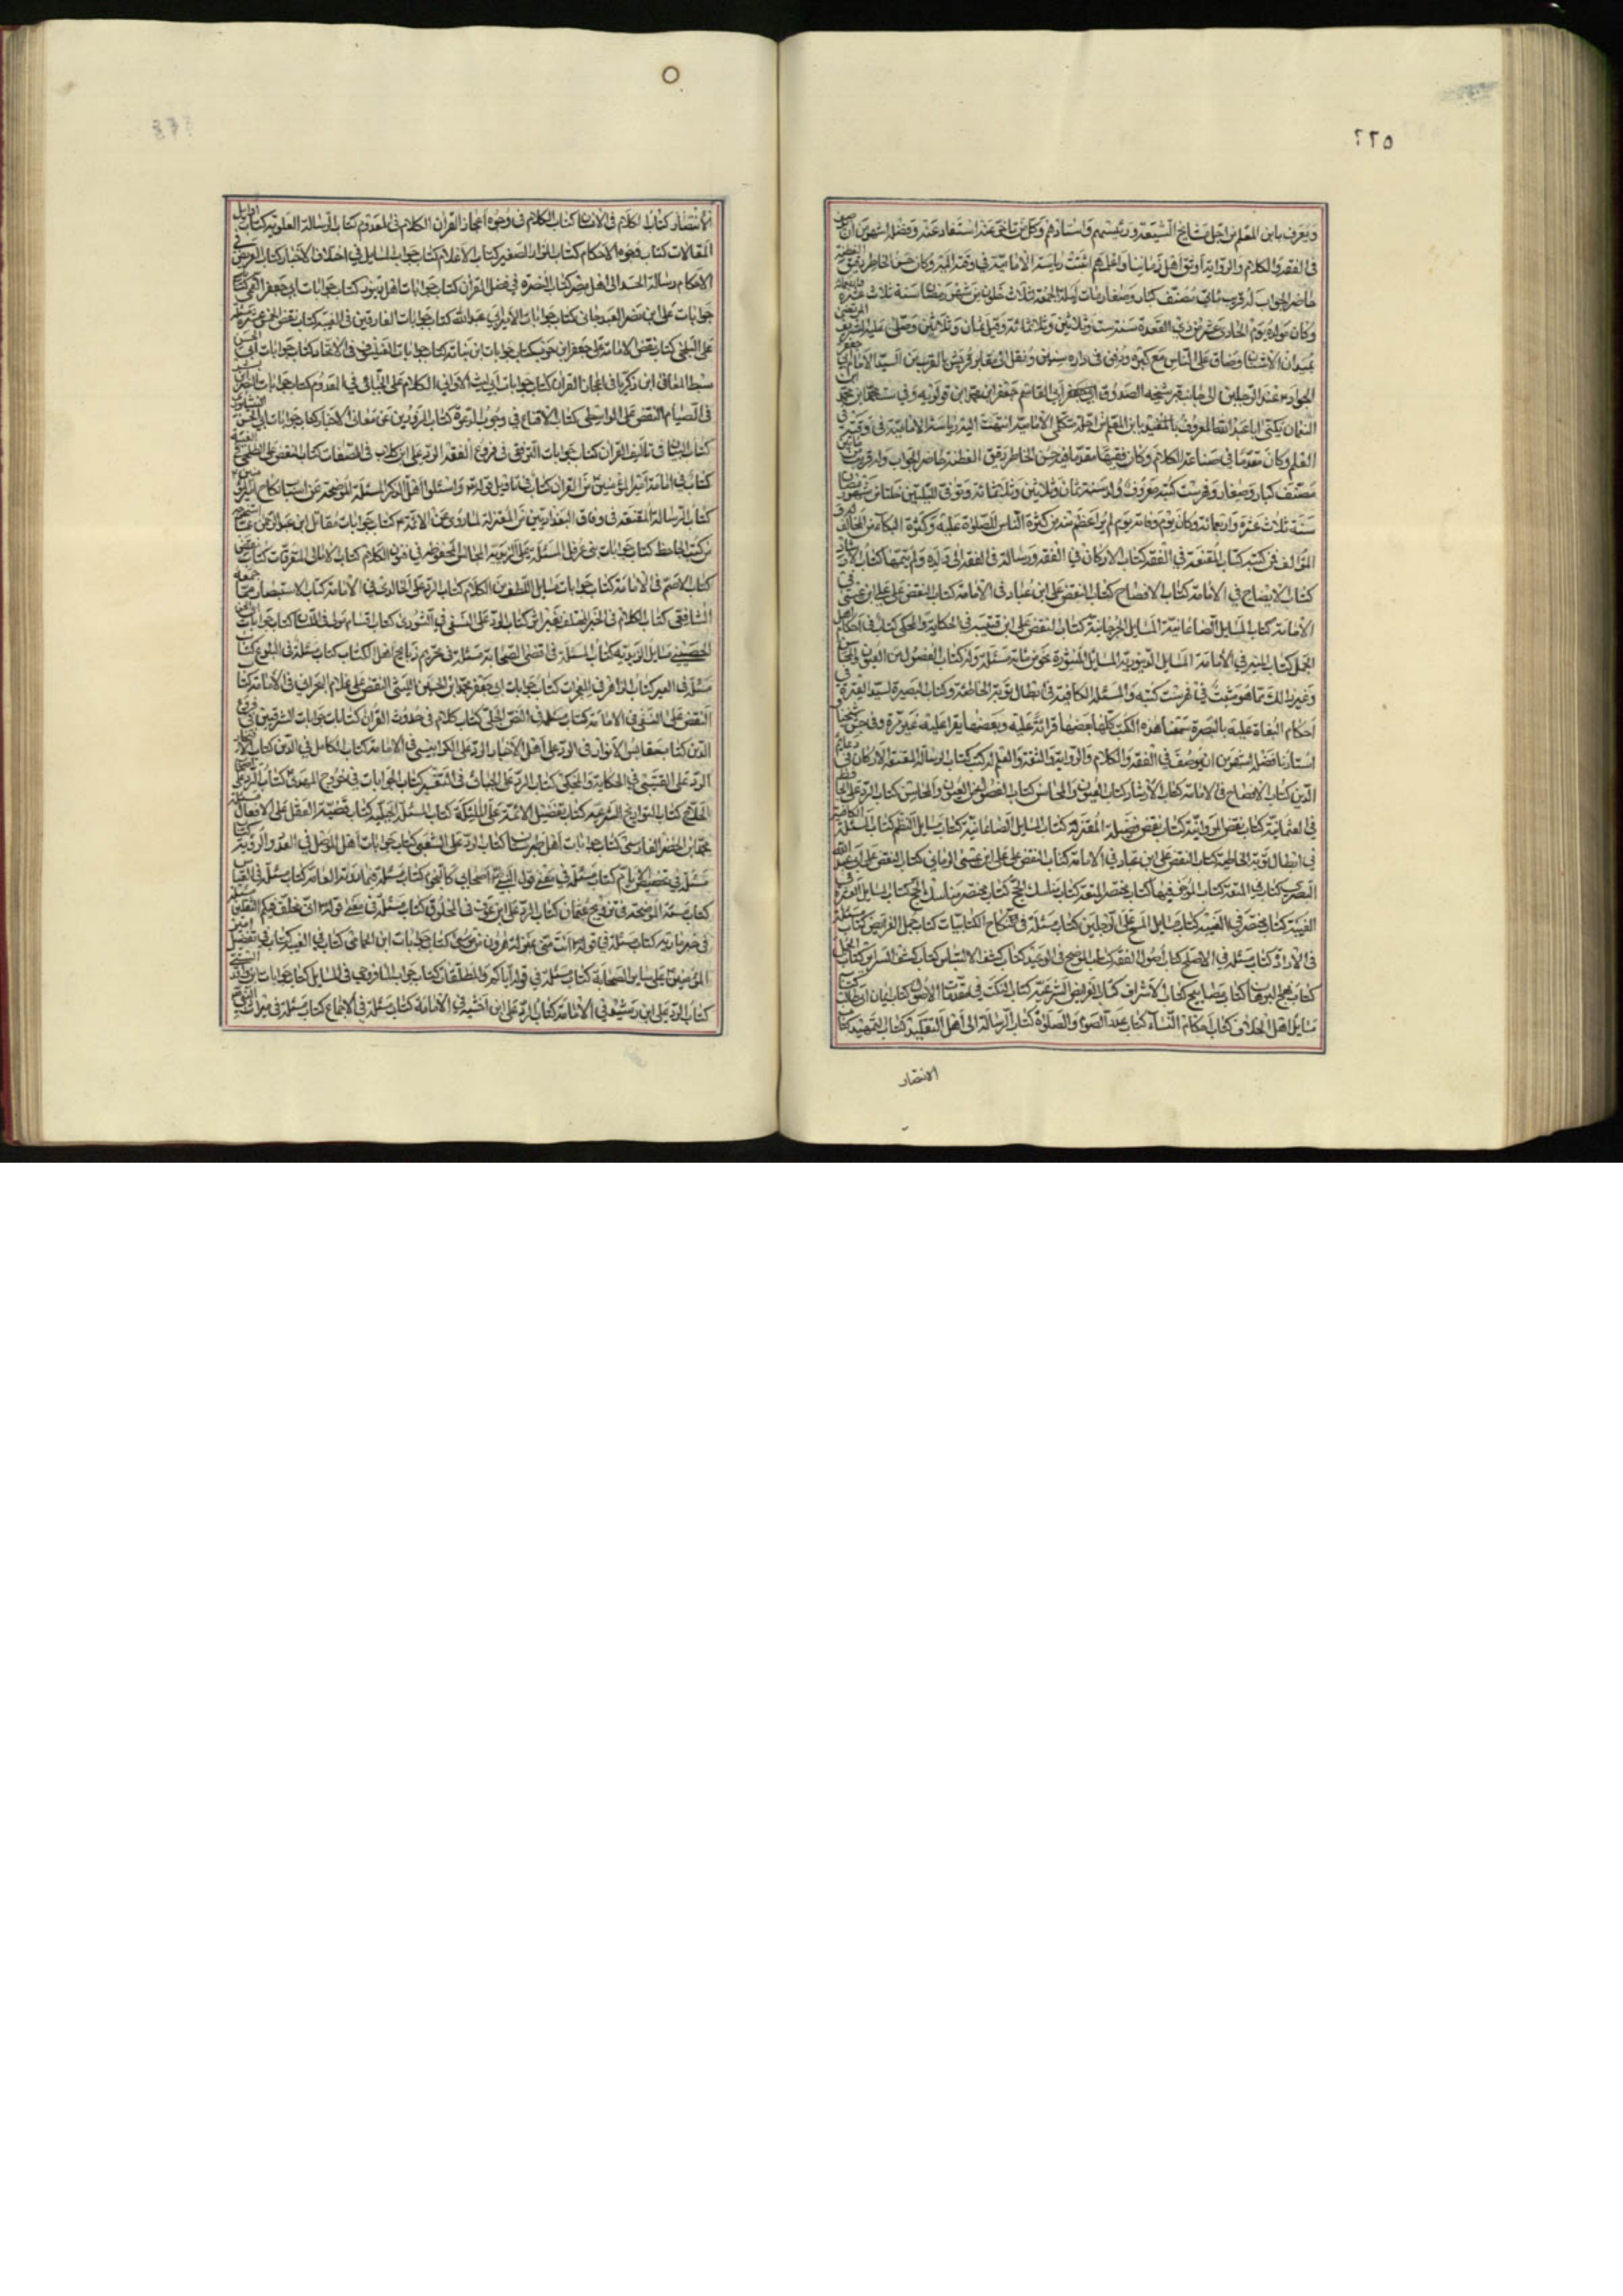 ٢٢٥
ويعرف بابن المعلم من اجل مشايخ الشيعة ورئيسهم واستادهم وكل من تاخر عنه استفاد عنه وفضله اشهر من ان يوصف
في الفقه والكلام والرواية اوثق اهل زمانه واعلمهم انتهت رياسة الامامية في وقته اليه وكان حسن الخاطر دقيق الفطنة
حاضر الجواب له قريب من مائتي مصنف كبار وصغار مات ليلة الجمعة لثلاث خلون من شهر رمضان سنة ثلاث عشرة
وكان مولده يوم الحادي عشر من ذي القعدة سنة ست وثلاثين وثلاثمائة وقيل ثمان وثلاثين وصلى عليه الشريف المرتضى
بميدان الاشنان وضاق على الناس مع كبره ودفن في داره سنين ونقل الى مقابر قريش بالقرب من السيد الامام ابي جعفر
الجواد عند الرجلين الى جانب قبر شيخه الصدوق ابي القاسم جعفر ابن محمد ابن قولويه وفي ست محمد ابن محمد ابن
النعمان يكنى ابا عبد الله المعروف بالمفيد بابن المعلم من اجلة متكلمي الامامية انتهت اليه رياسة الامامية في وقته في
العلم وكان مقدما في صناعة الكلام وكان فقيها مقدما فيه حسن الخاطر دقيق الفطنة حاضر الجواب وله قريب من مأتين
مصنف كبار وصغار وفهرست كتبه معروف ولد سنة ثمان وثلاثين وثلثمائة وتوفي لليلتين خلتا من شهر رمضان
سنة ثلاث عشرة واربعمائة وكان يوم وفاته يوم لم ير اعظم منه من كثرة الناس للصلوة عليه وكثرة البكاء من المخالف له و
المؤالف فمن كتبه كتاب المقنعة في الفقه كتاب الاركان في الفقه ورسالة في الفقه الى ولده ولم يتمها كتاب الارشاد
كتاب الايضاح في الامامة كتاب الافصاح كتاب النقض على ابن عباد في الامامة كتاب النقض على علي ابن عيسى في
الامامة كتاب المسايل الصاغانية المسايل الجرجانية كتاب النقض على ابن قتيبة في الحكاية والمحكي كتاب في احكام اهل
الجمل كتاب المنير في الامامة المسايل الدينورية المسايل المنثورة نحو من مائة مسئلة وله كتاب الفصول من العيون والمحاسن
وغير ذلك مما هو مثبت في فهرست كتبه والمسئلة الكافية في ابطال توبة الخاطئة وكتاب النصرة لسيد العترة في
احكام البغاة عليه بالبصرة سمعنا هذه الكتب كلها بعضها قراءة عليه وبعضها يقرا عليه غير مرة وفي جش شيخنا و
استادنا فضله اشهر من ان يوصف في الفقه والكلام والرواية والثقة والعلم له كتب كتاب الرسالة المقنعة الاركان في دعائم
الدين كتاب الافصاح في الامامة كتاب الارشاد كتاب العيون والمحاسن كتاب الفصول من العيون والمحاسن كتاب الرد على الجاحظ
في العثمانية كتاب نقض المروانية كتاب نقض فضيلة المعتزلة كتاب المسايل الصاغانية كتاب مسايل النظم كتاب المسئلة الكافية
في ابطال توبة الخاطئة كتاب النقض على ابن عباد في الامامة كتاب النقض على علي ابن عيسى الرماني كتاب النقض على ابي عبد الله
البصري كتابه في المتعة كتاب الموجز فيها كتاب مختصر المتعة كتاب مناسك الحج كتاب مختصر مناسك الحج كتاب المسايل العشرة في
الغيبة كتاب مختصر في الغيبة كتاب مسايل المسح على الرجلين كتاب مسئلة في نكاح الكتابيات كتاب جمل الفرايض كتاب مسئلة
في الارادة كتاب مسئلة في الاصلح كتاب اصول الفقه كتاب الموضح في الوعيد كتاب كشف الالتباس كتاب كشف السراير كتاب الجمل
كتاب لمح البرهان كتاب مصابيح كتاب الاشراف كتاب الفرايض الشرعية كتاب النكت في مقدمات الاصول كتاب ايمان ابي طالب كتاب
مسايل اهل الخلاف كتاب احكام النساء كتاب عدد الصوم والصلوة كتاب الرسالة الى اهل التقليد كتاب التمهيد كتاب
الانتصار
الانتصار كتاب الكلام في الانسان كتاب الكلام في وجوه اعجاز القران الكلام في المعدوم كتاب الرسالة العلوية كتاب اوايل
المقالات كتاب وجوه الاحكام كتاب المزار الصغير كتاب الاعلام كتاب جواب المسايل في اختلاف الاخبار كتاب العويص في
الاحكام رسالة الجندي الى اهل مصر كتاب النصرة في فضل القران كتاب جوابات اهل دينور كتاب جوابات ابي جعفر القمي كتاب
جوابات علي ابن نصر العبدجاني كتاب جوابات الامير ابي عبد الله كتاب جوابات الفارقين في الغيبة كتاب نقض الخمس عشرة مسئلة
على البلخي كتاب نقض الامامة على جعفر ابن حرب كتاب جوابات ابن نباتة كتاب جوابات الفيلسوف في الاتحاد كتاب جوابات ابي الحسن
سبط المعافى ابن زكريا في اعجاز القران كتاب جوابات ابي الليث الاواني الكلام على الجبائي في المعدوم كتاب جوابات النضر ابن بشير
في الصيام النقض على الواسطي كتاب الاقناع في وجوب الدعوة كتاب المزورين عن معاني الاخبار كتاب جوابات ابي الحسن النيسابوري
كتاب البيان في تاليف القران كتاب جوابات البرقعي في فروع الفقه الرد على ابن كلاب في الصفات كتاب النقض على الطلحي في الغيبة
كتاب في امامة امير المؤمنين من القران كتاب في تاويل قوله تعالى واسئلوا اهل الذكر المسئلة الموضحة عن اسباب نكاح امير المؤمنين
كتاب الرسالة المقنعة في وفاق البغداديين من المعتزلة لما روي عن الائمة كتاب جوابات مقاتل ابن عبد الرحمن عما استخرجه
من كتب الجاحظ كتاب جوابات بني عرقل المسئلة على الزيدية المجالس المحفوظة في فنون الكلام كتاب الامالي المتفرقات كتاب نقض
كتاب الاصم في الامامة كتاب جوابات مسايل اللطيف من الكلام كتاب الرد على الخالدي في الامامة كتاب الاستبصار فيما جمعه
الشافعي كتاب الكلام في الخبر المختلق بغير اثر كتاب الرد على العتبي في الشورى كتاب اقسام مولى في اللسان كتاب جوابات ابي الحسن
الحصيني مسايل الزيدية كتاب المسئلة في اقضى الصحابة مسئلة في تحريم ذبايح اهل الكتاب كتاب مسئلة في البلوغ كتاب
مسئلة في العترة كتاب الزاهر في المعجزات كتاب جوابات ابي جعفر محمد ابن الحسين الليثي النقض على غلام البحراني في الامامة كتاب
النقض على النصيبي في الامامة كتاب مسئلة في النص الجلي كتاب الكلام في حدوث القران كتاب جوابات الشرقيين في فروع
الدين كتاب مقابس الانوار في الرد على اهل الاخبار الرد على الكرابيسي في الامامة كتاب الكامل في الدين كتاب الافتخار
الرد على القتيبي في الحكاية والمحكي كتاب الرد على الجبائي في التفسير كتاب الجوابات في خروج المهدي كتاب الرد على اصحاب
الحلاج كتاب التواريخ الشرعية كتاب تفضيل الائمة على الملئكة كتاب المسئلة الحنبلية كتاب قضية العقل على الافعال مسئلة
محمد ابن الخضر الفارسي كتاب جوابات اهل طبرستان كتاب الرد على الشعبي كتاب جوابات اهل الموصل في العدد والرؤية كتاب
مسئلة في تخصيص الايام كتاب مسئلة في معنى قول النبي اصحابي كالنجوم كتاب مسئلة فيما روته العامة كتاب مسئلة في القياس
كتاب مسئلة الموضحة في تزويج عثمان كتاب الرد على ابن عون في المخلوق كتاب مسئلة في معنى قوله اني مخلف فيكم الثقلين مسئلة
في خبر مارية كتاب مسئلة في قوله انت مني بمنزلة هرون من موسى كتاب جوابات ابن الحمامي كتاب في الغيبة كتاب في تفضيل امير
المؤمنين على ساير الصحابة كتاب مسئلة في قوله المطلقات كتاب جواب المافروخي في المسايل كتاب جوابات ابن واقد السني
كتاب الرد على ابن رشيد في الامامة كتاب الرد على ابن اخشيد في الامامة كتاب مسئلة في الاجماع كتاب مسئلة في ميراث النبي